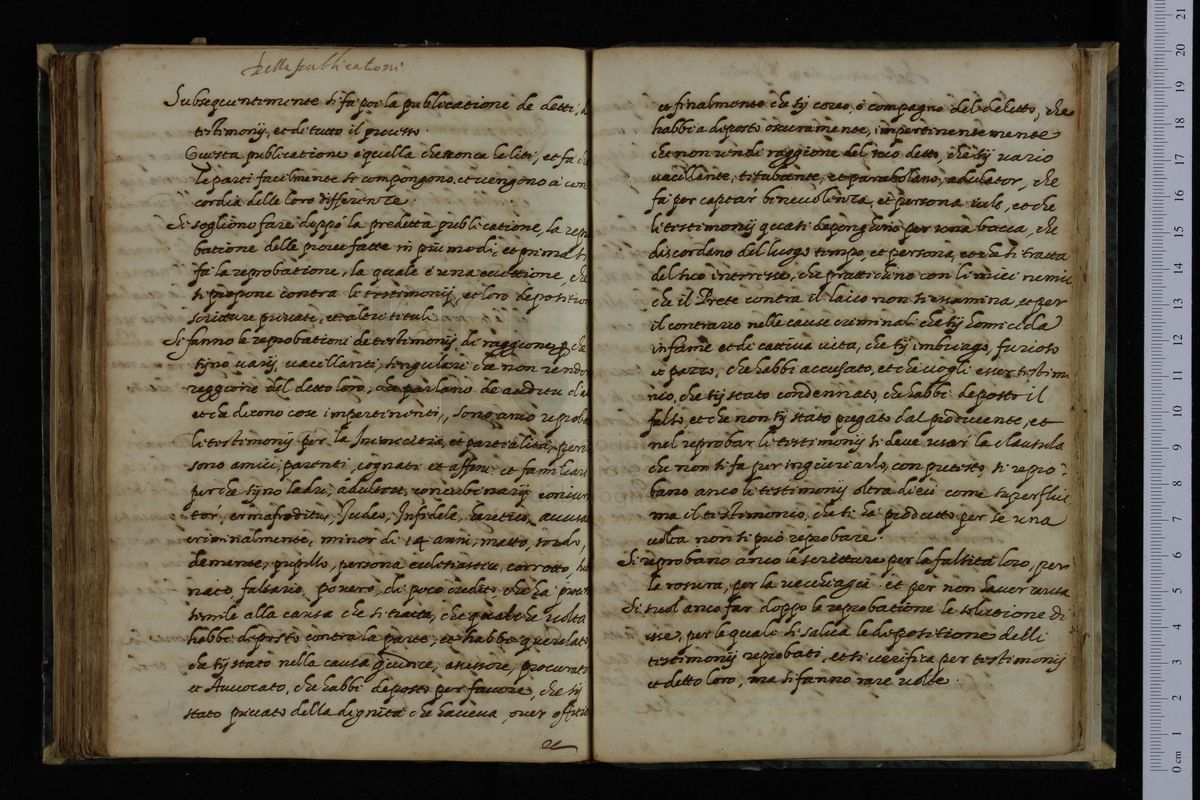 Della publicationi
Subsequentemente si fa poi la publicatione de detti, d
testimonij, et di tutto il processo.
Questa publicatione è quella che tronca le liti, et fà ch
le parti facilmente si compongono, et vengono à con
cordia delle loro differenze.
Si sogliono fare doppò la predetta publicatione, la repro
batione delle prove fatte in più modi, et prima si
fà la reprobatione, la quale è una eccettione, che
si propone contra li testimonij, et loro depositioni
scritture private, et altri tituli.
Si fanno le reprobationi de testimonij di raggione che
sijno varij, vacillanti, singulari che non rendon
raggione del detto loro, che parlano de auditu
et che dicono cose impertinenti, sono anco reprobati
li testimonij per la Inimicitia, et partialità, perche
sono amici, parenti, cognati et affini et familiari
perche sijno ladri, adulteri, concubinarij
ermafroditus, Judeo, Infidele, heretico, accusato
criminalmente, minor di 14 anni, matto, sordo,
demente, pupillo, persona ecclesiastica, corrotto,
falsario, povero, di poco credito, che hà
simile alla causa che si tratta, che qualche volta
habbi deposto contra la parte, et habbi querelato
che sij stato nella causa giudice, assessore, procurator
et Avvocato, che habbi deposto per favore, che sij
stato privato della dignità che haveva, over offitio
et finalmente che sij correo, ò compagno del deletto, che
habbia deposto oscuramente, impertinentemente
che non rendi raggione del suo detto, che sij vario
vacillante, titubante, et parabolano, adulator, che
fà per captar benevolenza, et persona vile, et che
li testimonij quasi deponghino per una bocca, che
discordano del luogo tempo, et persona, et che si tratta
del suo interesse, che pratticano con li miei nemici
che il Prete contra il laico non si essamina, et per
il contrario nelle cause criminali che sij homicida
infame et di cattiva vita, che sij imbriago, furioso
et pazzo, che habbi accusato, et che vogli esser testimo
nio, che sij stato condennato, che habbi deposto il
falso, et che non sij stato pregato dal producente, et
nel reprobar li testimonij si deve usar la clausula
che non si fa per ingiuriarlo, con protesto, si repro
bano anco li testimonij oltra dieci come superflui
ma il testimonio, che si hà prodotto per se una
volta non si può reprobare.
Si reprobano anco le scritture per la falsità loro, però
la rosura, per la vecchiagia et per non haver causa
Si suol anco far doppo la reprobatione la solutione di
esse, per le quale si salva le depositione delli
testimonij reprobati, et si verifica per testimonij
et detto loro, ma si fanno rare volte.